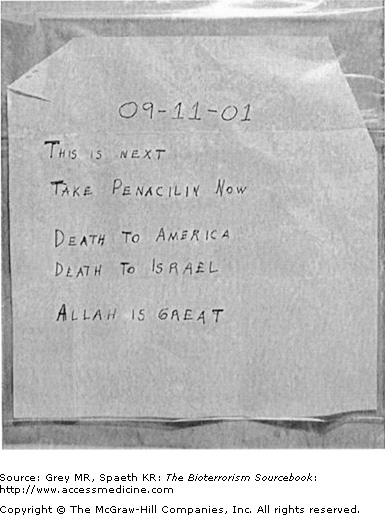 09-11-01
THIS IS NEXT
TAKE PENACILIN NOW
DEATH TO AMERICA
DEATH TO ISRAEL
ALLAH IS GREAT
Source: Grey MR, Spaeth KR: The Bioterrorism Sourcebook:
http://www.accessmedicine.com
Copyright © The McGraw-Hill Companies, Inc. All rights reserved.